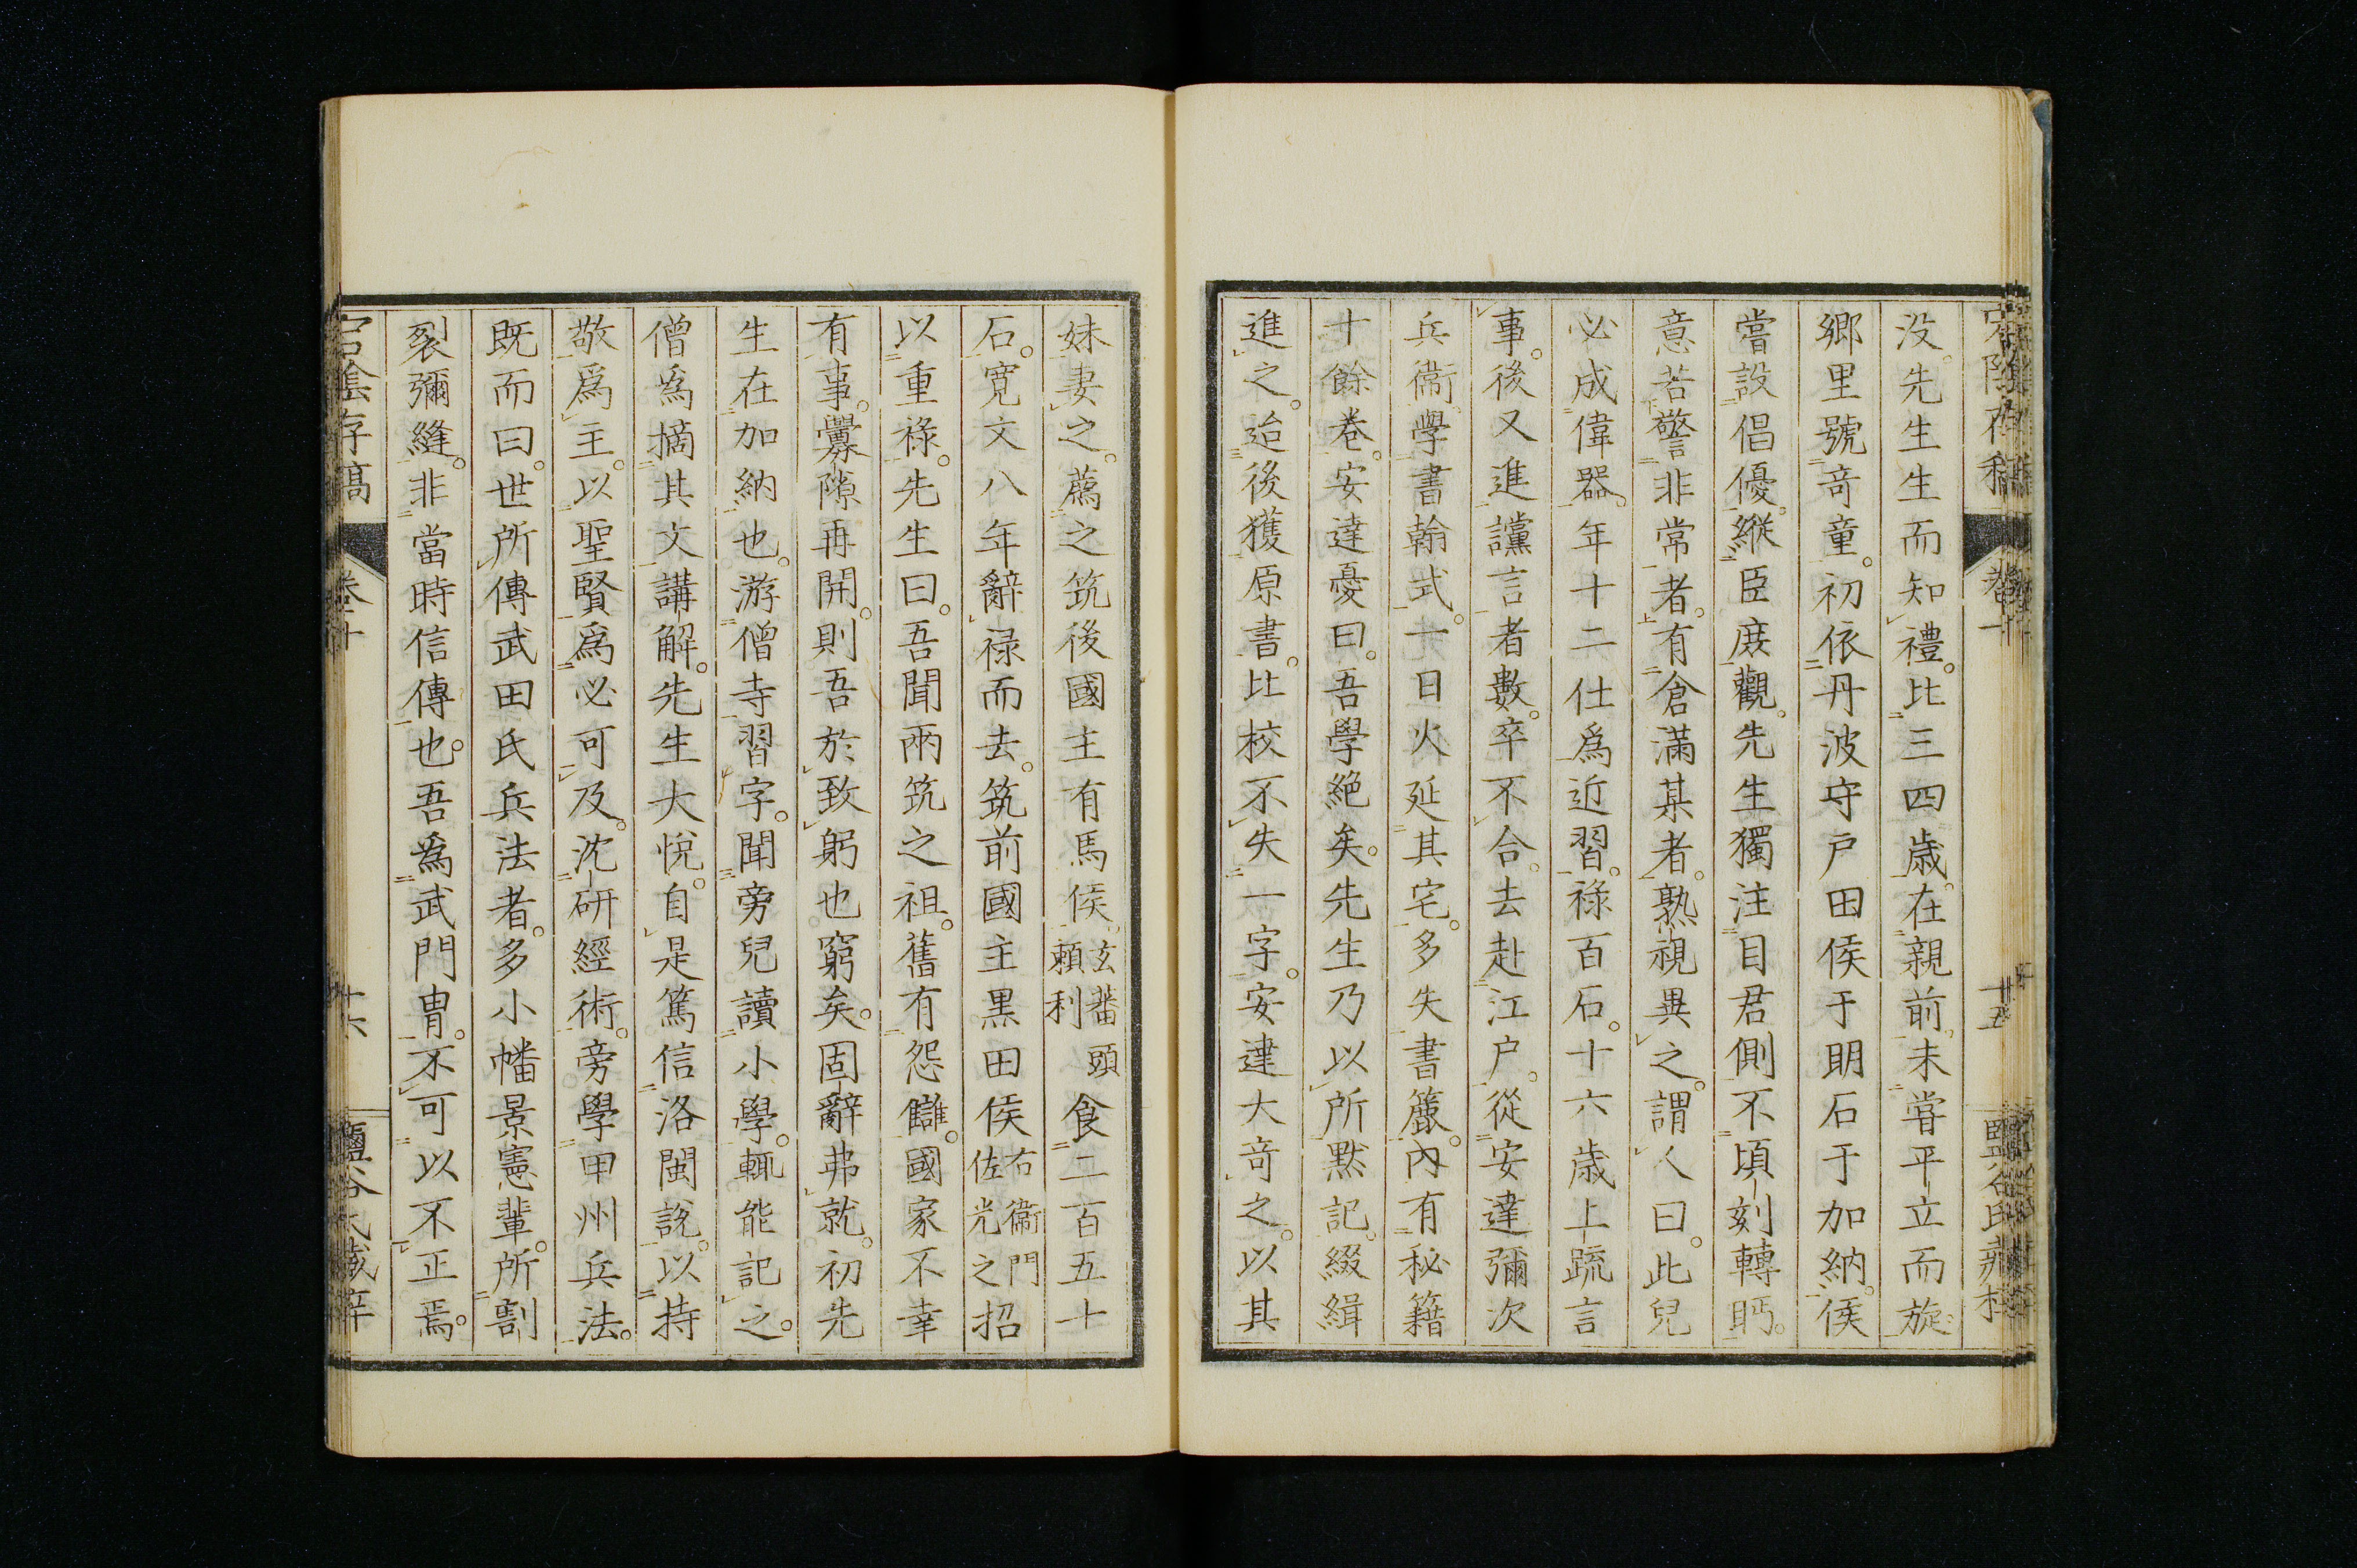 没。先生生而知禮。比三四歳。在親前。未甞平立而旋。
郷里號竒童。初依丹波守戸田侯于明石于加納。侯
嘗設倡優。縦臣庻觀。先生獨注目君側不頃刻轉眄。
意若警非常者。有倉滿某者。熟視異之。謂人曰。此兒
必成偉器。年十二仕爲近習。祿百石。十六歳上疏言
事。後又進讜言者數。卒不合。去赴江户。從安達彌次
兵衞學書翰式。一日火延其宅。多失書簏。内有秘籍
十餘巻。安達憂曰。吾學絶矣。先生乃以所黙記。綴緝
進之。迨後獲原書。比校不失一字。安達大竒之。以其
妹妻之。薦之筑後國主有馬侯。玄蕃頭頼利食二百五十
石。寛文八年辭禄而去。筑前國主黒田侯右衞門佐光之招
以重祿。先生曰。吾聞兩筑之祖。舊有怨讎。國家不幸
有事。釁隙再開。則吾於致躬也窮矣。固辭弗就。初先
生在加納也。游僧寺習字。聞旁兒讀小學。輒能記之。
僧爲摘其文講解。先生大悦。自是篤信洛閩説。以持
敬爲主。以聖賢爲必可及。沈研經術。旁學甲州兵法。
既而曰。世所傳武田氏兵法者。多小幡景憲輩。所割
裂彌縫。非當時信傳也。吾爲武門冑。不可以不正焉。
宕陰存稿 卷十 十六